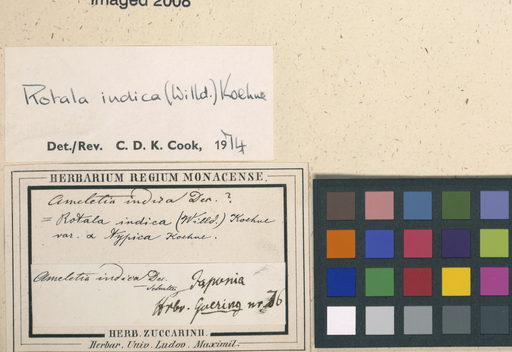 Imaged 2008
Rotala indica (Willd.) Koehne
Det./Rev. C. D. K. Cook, 1974
HERBARIUM REGIUM MONACENSE.
Ameletia indica Dec. ?
= Rotala indica (Willd.) Koehne
var. α typica Koehne.
Ameletia indica Dec.
Japonia
Hrbr. Goering nr.
HERB. ZUCCARINII.
Herbar. Univ. Ludov. Maximil.